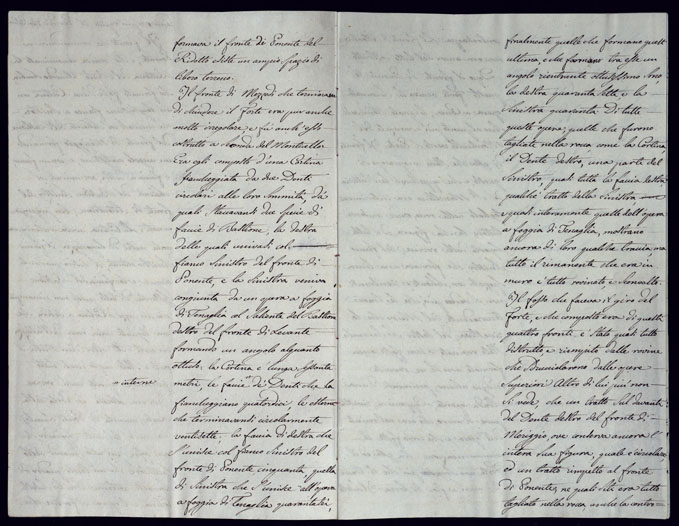 formava il fronte di Ponente del
Ridotto esiste un ampio spazio di
libero terreno.
Il fronte di Mezzodì che terminava
di chiudere il Forte era pur anche
molto irregolare e fù anch'esso
costrutto a seconda del Monticello
Era egli composto d'una Cortina
fiancheggiata da due Denti
circolari alle loro sommità, da
quali staccavansi due specie di
faccie di Bastione, la destra
delle quali univasi col
fianco sinistro del fronte di
Ponente, e la sinistra veniva
congiunta da un opera a foggia
di Tenaglia col saliente del Bastione
destro del fronte di Levante
formando un angolo alquanto
ottuso, la Cortina è lunga
metri, le faccie interne de Denti che la
fiancheggiano quatordici, le esterne
che terminavansi circolarmente
ventisette, la faccia di destra che
s'unisce col fianco sinistro del
fronte di Ponente cinquanta quella
di sinistra che s'unisce all'opera
a foggia di Tenaglia quarantasei,
finalmente quelle che formano quest
ultima, e che formano era esse un
angolo rientrante ottusissimo sono
la destra quaranta sette, e la
sinistra quaranta. Di tutte
queste opere, quelle che furono
tagliate nella roca come la Cortina,
il Dente destro, una parte del
sinistro, quasi tutta la faccia destra,
qualche tratto della sinistra
e quasi intieramente quelle dell'opera
a foggia di Tenaglia, mostrano
ancora di loro qualche traccia, ma
tutto il rimanente che era in
muro è tutto rovinato e demolito.
Il fosso che faceva il giro del
Forte, e che composto era di questi
quattro fronti, è stato quasi tutto
distrutto e riempito dalle rovine
che Drucciolarono dalle opere
superiori. Altro di lui, più non
si vede, che un tratto sul davanti
del Dente destro del fronte di
Meriggio ove conserva ancora l'
intera sua figura, quale è circolare,
ed un tratto rimpetto al fronte
di Ponente, ne quali siti era tutto
tagliato nella roca anche la contro=